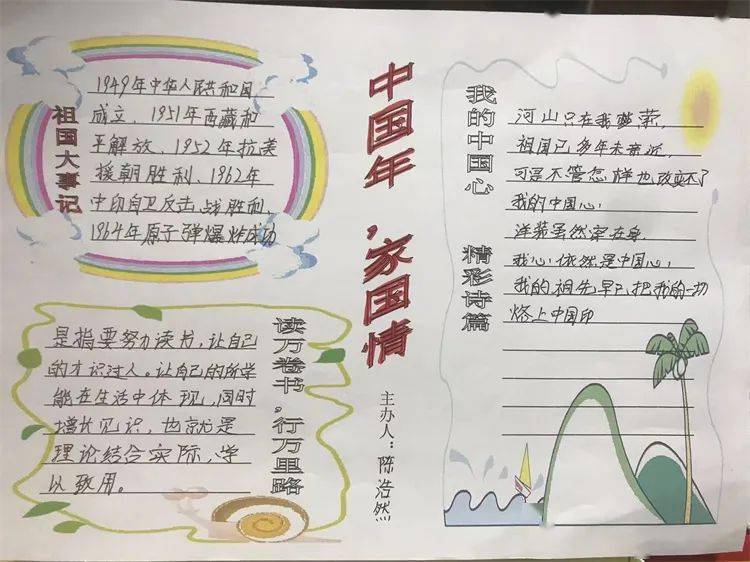 祖国大事记
1949年中华人民共和国
成立、1951年西藏和
平解放、1952年抗美
援朝胜利、1962年
中印自卫反击战胜利、
1964年原子弹爆炸成功
读万卷书，行万里路
是指要努力读书，让自己
的才识过人。让自己的所学
能在生活中体现，同时
增长见识，也就是
理论结合实际，学
以致用。
中国年，家国情
主办人：陈浩然
我的中国心 精彩诗篇
河山只在我梦萦，
祖国已多年未亲近，
可是不管怎样也改变不了
我的中国心，
洋装虽然穿在身，
我心依然是中国心，
我的祖先早已把我的一切
烙上中国印